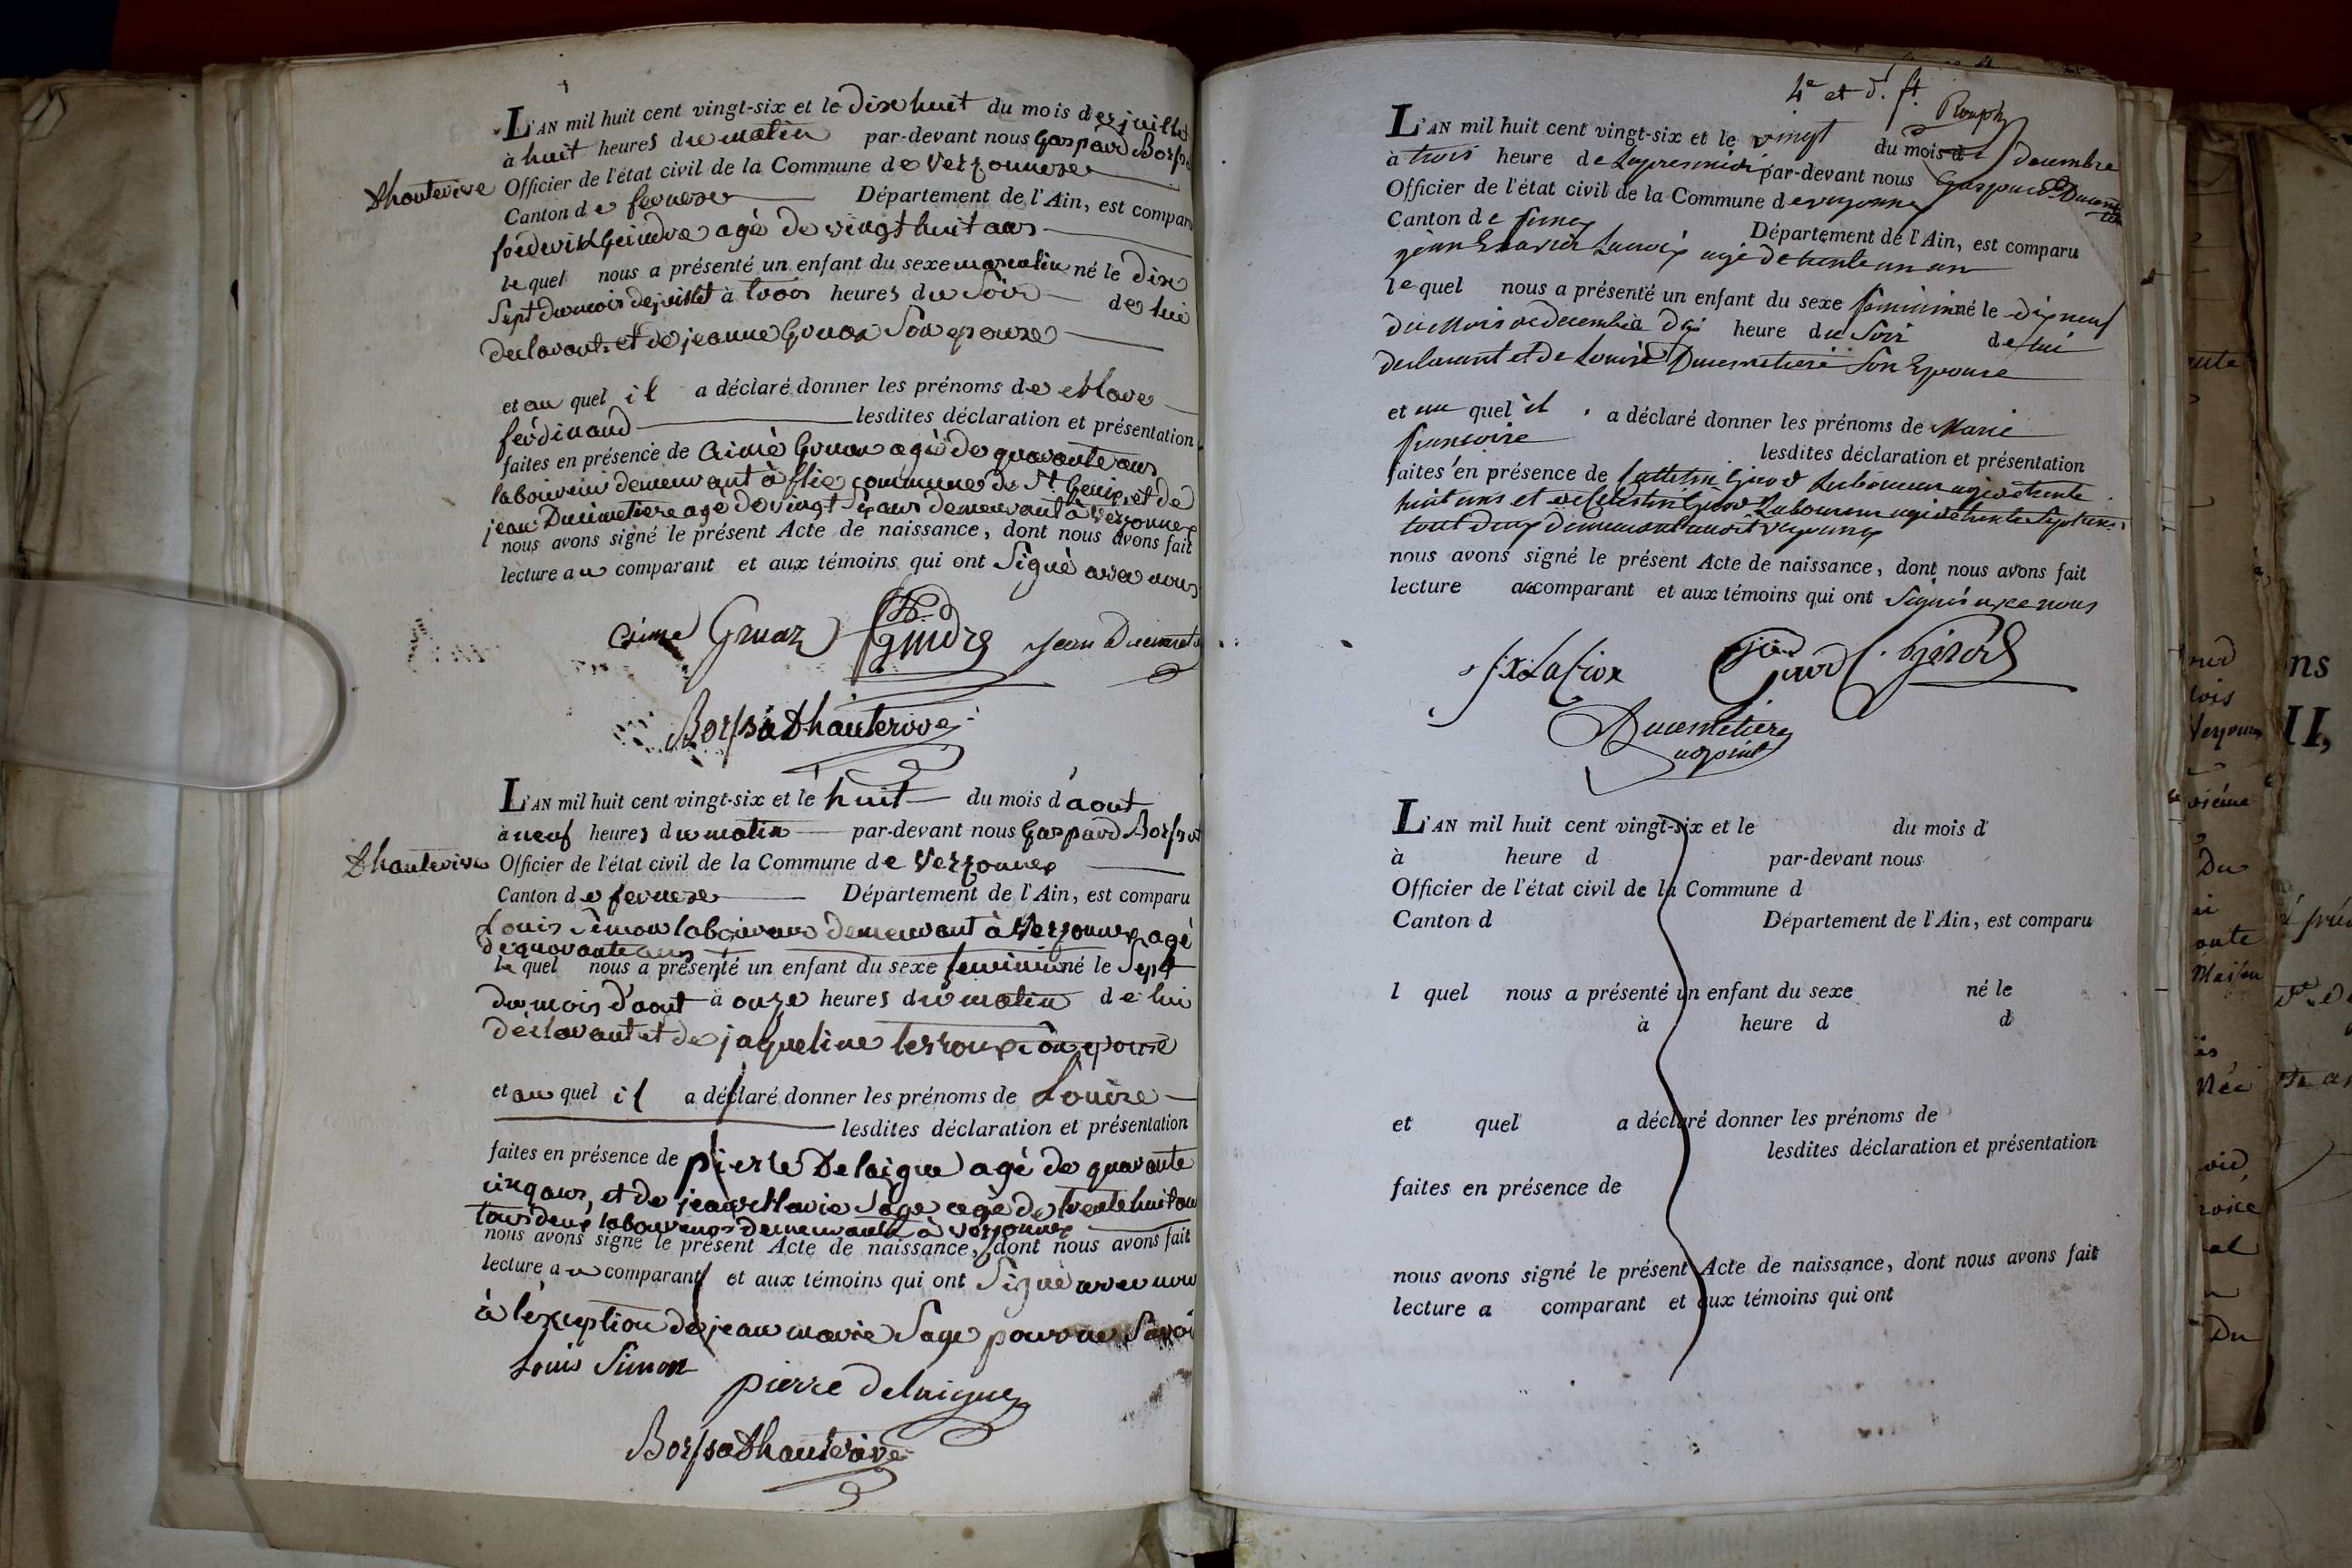 L'AN mil huit cent vingt-six et le dix huit du mois de juillet
à huit heures du matin par-devant nous Gaspard Borssat
Dhauterive Officier de l'état civil de la Commune de Versonnex
Canton de fernex Département de l'Ain, est comparu
fréderik Geindre agé de vingt huit ans
lequel nous a présenté un enfant du sexe masculin né le dix
Sept du mois de juillet à trois heures du Soir de lui
declarant et de jeanne Gruaz Son epouse
et au quel il a déclaré donner les prénoms de Marc
ferdinand lesdites déclaration et présentation
faites en présence de Aimé Gruaz agé de quarante ans
laboureur demeurant à flie commune de St. Genix, et de
jean Ducimetiere agé de vingt Six ans demeurant à versonnex
nous avons signé le présent Acte de naissance, dont nous avons fait
lecture au comparant et aux témoins qui ont Signé avec nous
Aimé Gruaz Gindre jean Ducimetiere
Borssat Dhauterive
L'AN mil huit cent vingt-six et le huit du mois d'aout
à neuf heures du matin par-devant nous Gaspard Borssat
Dhauterive Officier de l'état civil de la Commune de Versonnex
Canton de fernex Département de l'Ain, est comparu
Louis Simon laboureur demeurant à Versonnex, agé
de quarante ans
le quel nous a présenté un enfant du sexe feminin né le Sept
du mois d'aout à onze heures du matin de lui
déclarant et de jaqueline terroux Son epouse
et au quel il a déclaré donner les prénoms de Louise
lesdites déclaration et présentation
faites en présence de pierre Delaigue agé de quarante
cinq ans, et de jean Marie Sage agé de trente huit ans
tous deux laboureurs demeurants à versonnex
nous avons signé le présent Acte de naissance, dont nous avons fait
lecture au comparant et aux témoins qui ont Signé avec nous
à l'exception de jean marie Sage pour ne Savoir
Louis Simon
pierre delaigue
Borssat Dhauterive
4e et d. ft
L'AN mil huit cent vingt-six et le vingt du mois de Decembre
à trois heure de Lapresmidi par-devant nous Gaspard Ducimetiere
Officier de l'état civil de la Commune de versonnex
Canton de fernex Département de l'Ain, est comparu
jean Exavier Lacroix agé de trente un an
le quel nous a présenté un enfant du sexe feminin né le dix neuf
du Mois de decembre à dix heure du Soir de lui
declarant et de Louise Ducimetiere Son Epouse
et au quel il a déclaré donner les prénoms de Marie
fransoise lesdites déclaration et présentation
faites en présence de Girod Laboureur agé de trente
huit ans et de Celestin Girod Laboureur agé de trente Sept ans
tout deux demeurant audit versonnex
nous avons signé le présent Acte de naissance, dont nous avons fait
lecture au comparant et aux témoins qui ont Signés avec nous
fx Lacroix Girod C. girod
Ducimetiere
adjoint
L'AN mil huit cent vingt-six et le du mois d
à heure d par-devant nous
Officier de l'état civil de la Commune d
Canton d Département de l'Ain, est comparu
l quel nous a présenté un enfant du sexe né le
à heure d d
et quel a déclaré donner les prénoms de
lesdites déclaration et présentation
faites en présence de
nous avons signé le présent Acte de naissance, dont nous avons fait
lecture a comparant et aux témoins qui ont